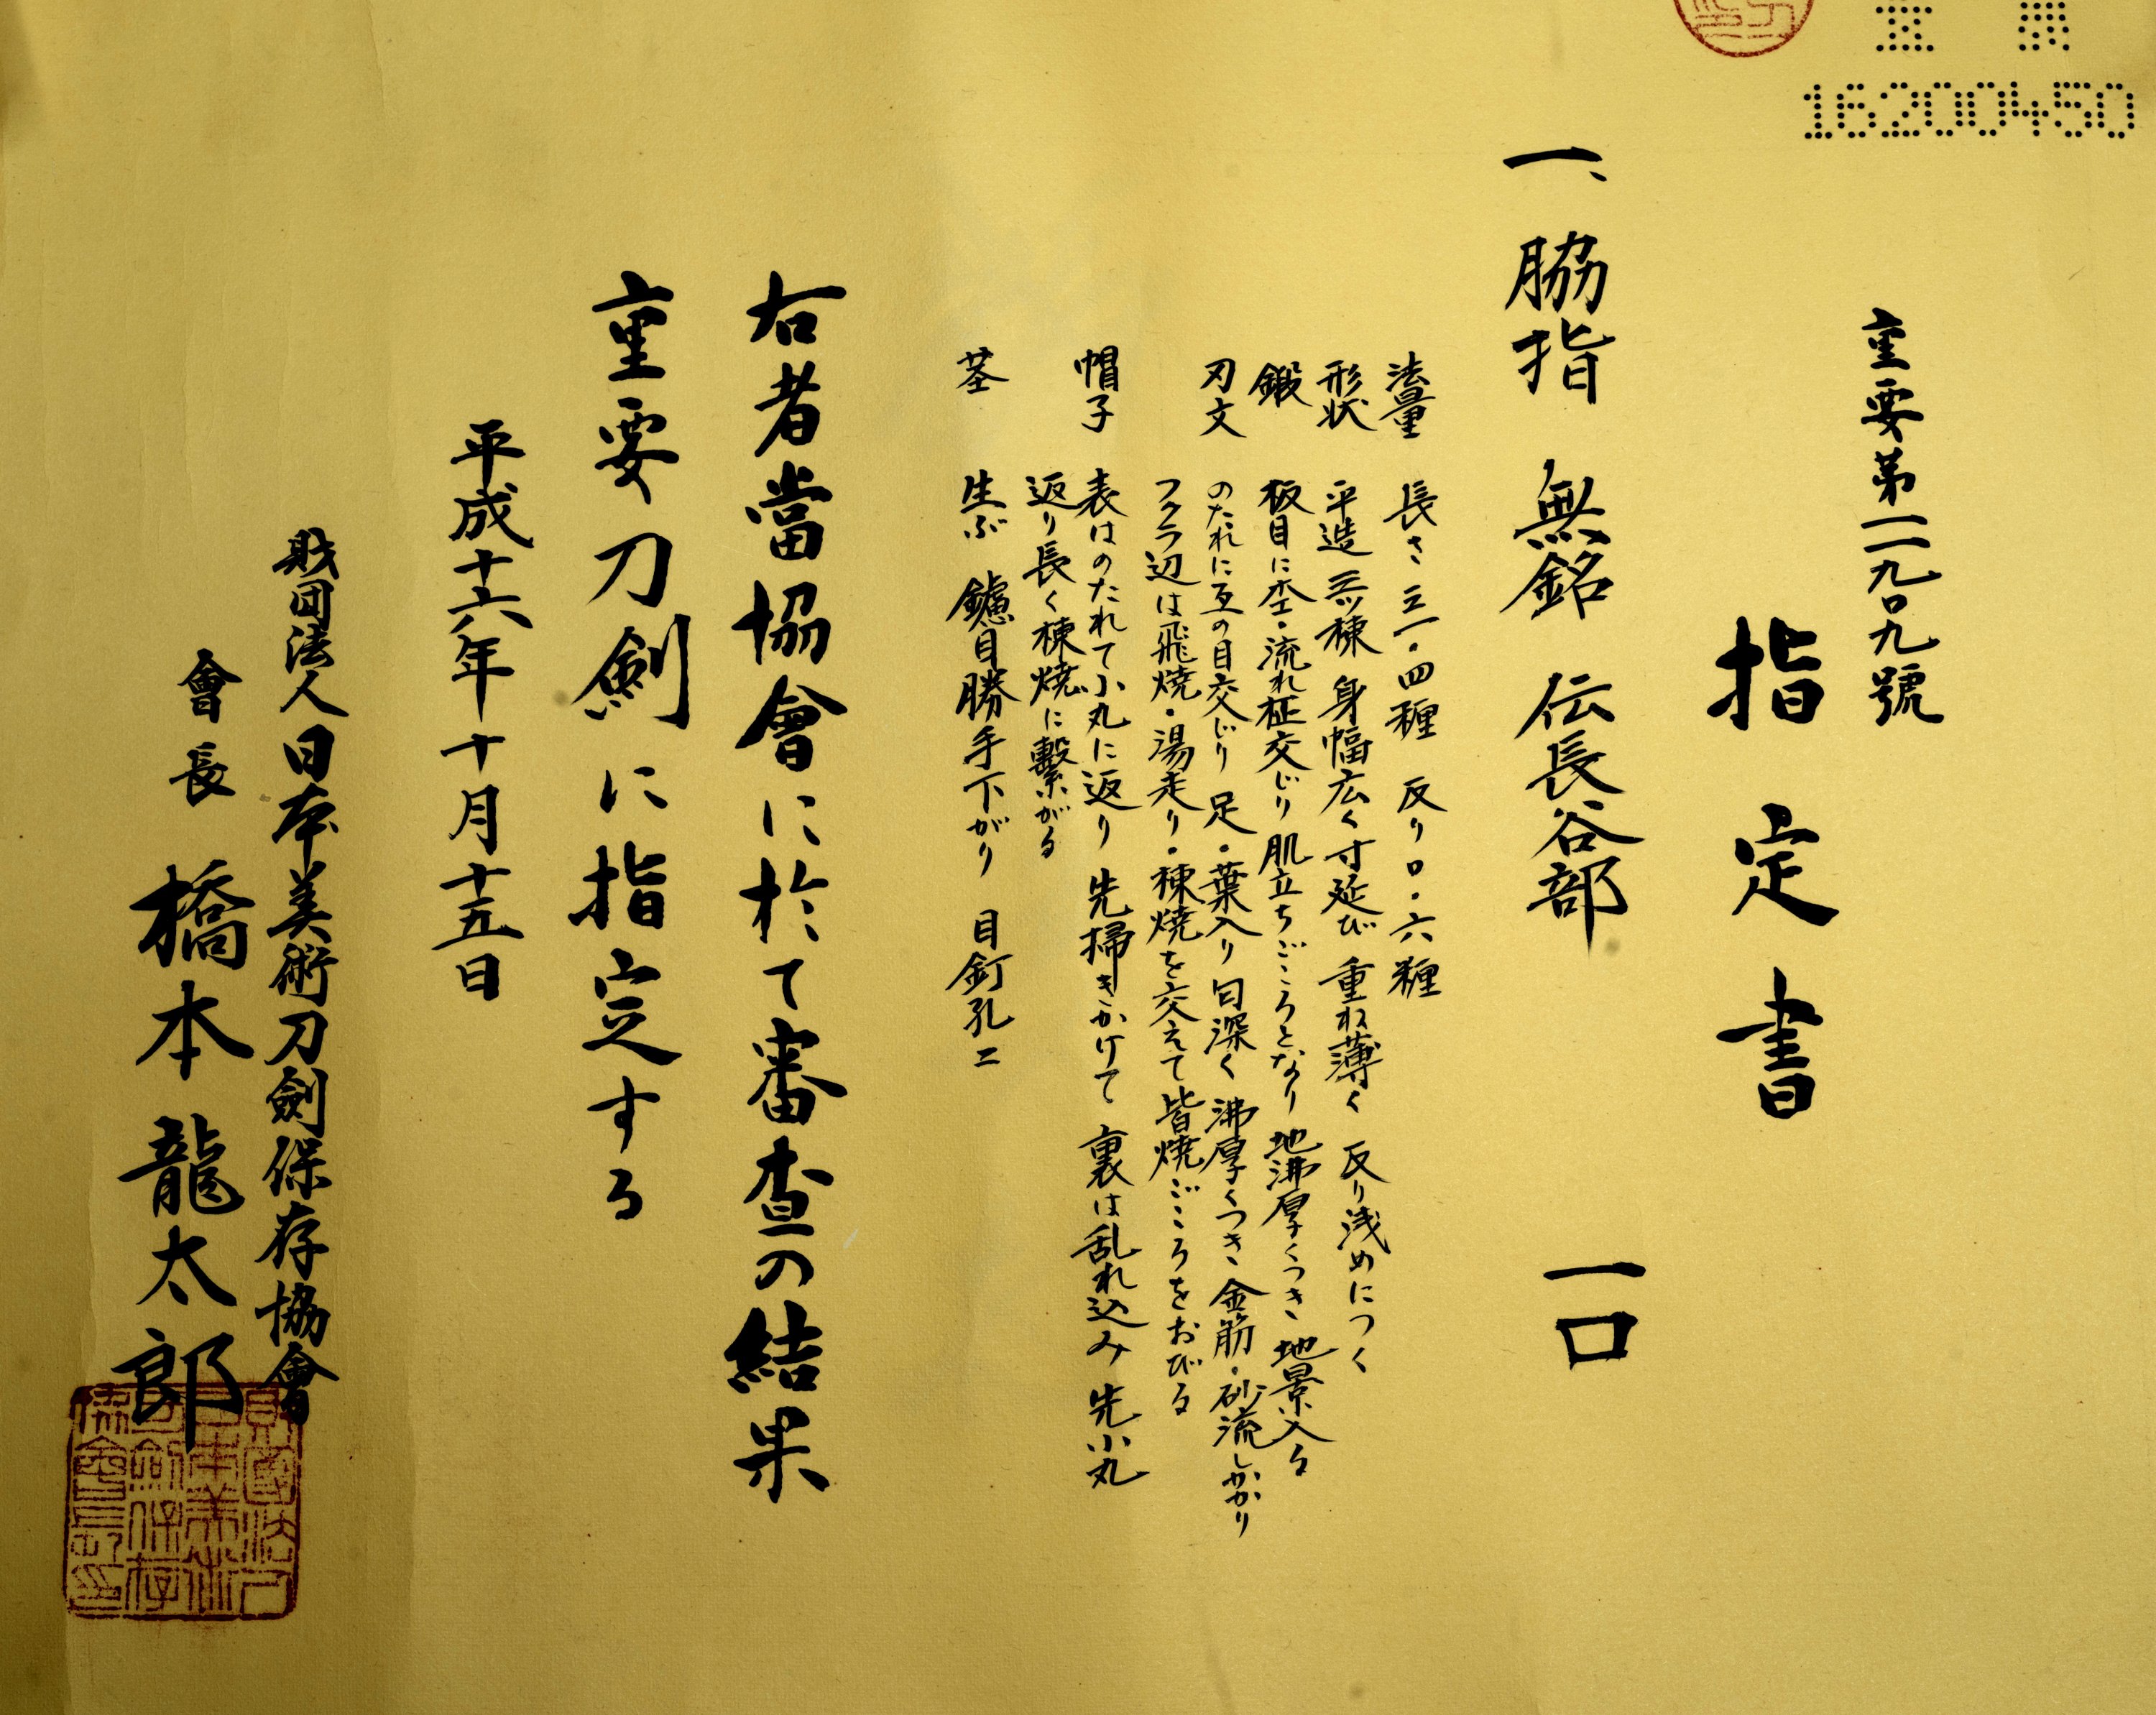 16200450
重要第一一九〇九號
指定書
一、脇指 無銘 伝長谷部 一口
法量 長さ三一・四糎 反り〇・六糎
形状 平造 三ツ棟 身幅広く寸延び 重ね薄く 反り浅めにつく
鍛 板目に杢・流れ柾交じり 肌立ちごころとなり 地沸厚くつき 地景入る
刃文 のたれに互の目交じり 足・葉入り 匂深く 沸厚くつき 金筋・砂流しかかり
フクラ辺は飛焼・湯走り・棟焼を交えて皆焼ごころをおびる
帽子 表はのたれて小丸に返り 先掃きかけて 裏は乱れ込み 先小丸
返り長く棟焼に繋がる
茎 生ぶ 鑢目勝手下がり 目釘孔二
右者當協會に於て審査の結果
重要刀剣に指定する
平成十六年十月十五日
財団法人日本美術刀劍保存協會
會長 橋本龍太郎